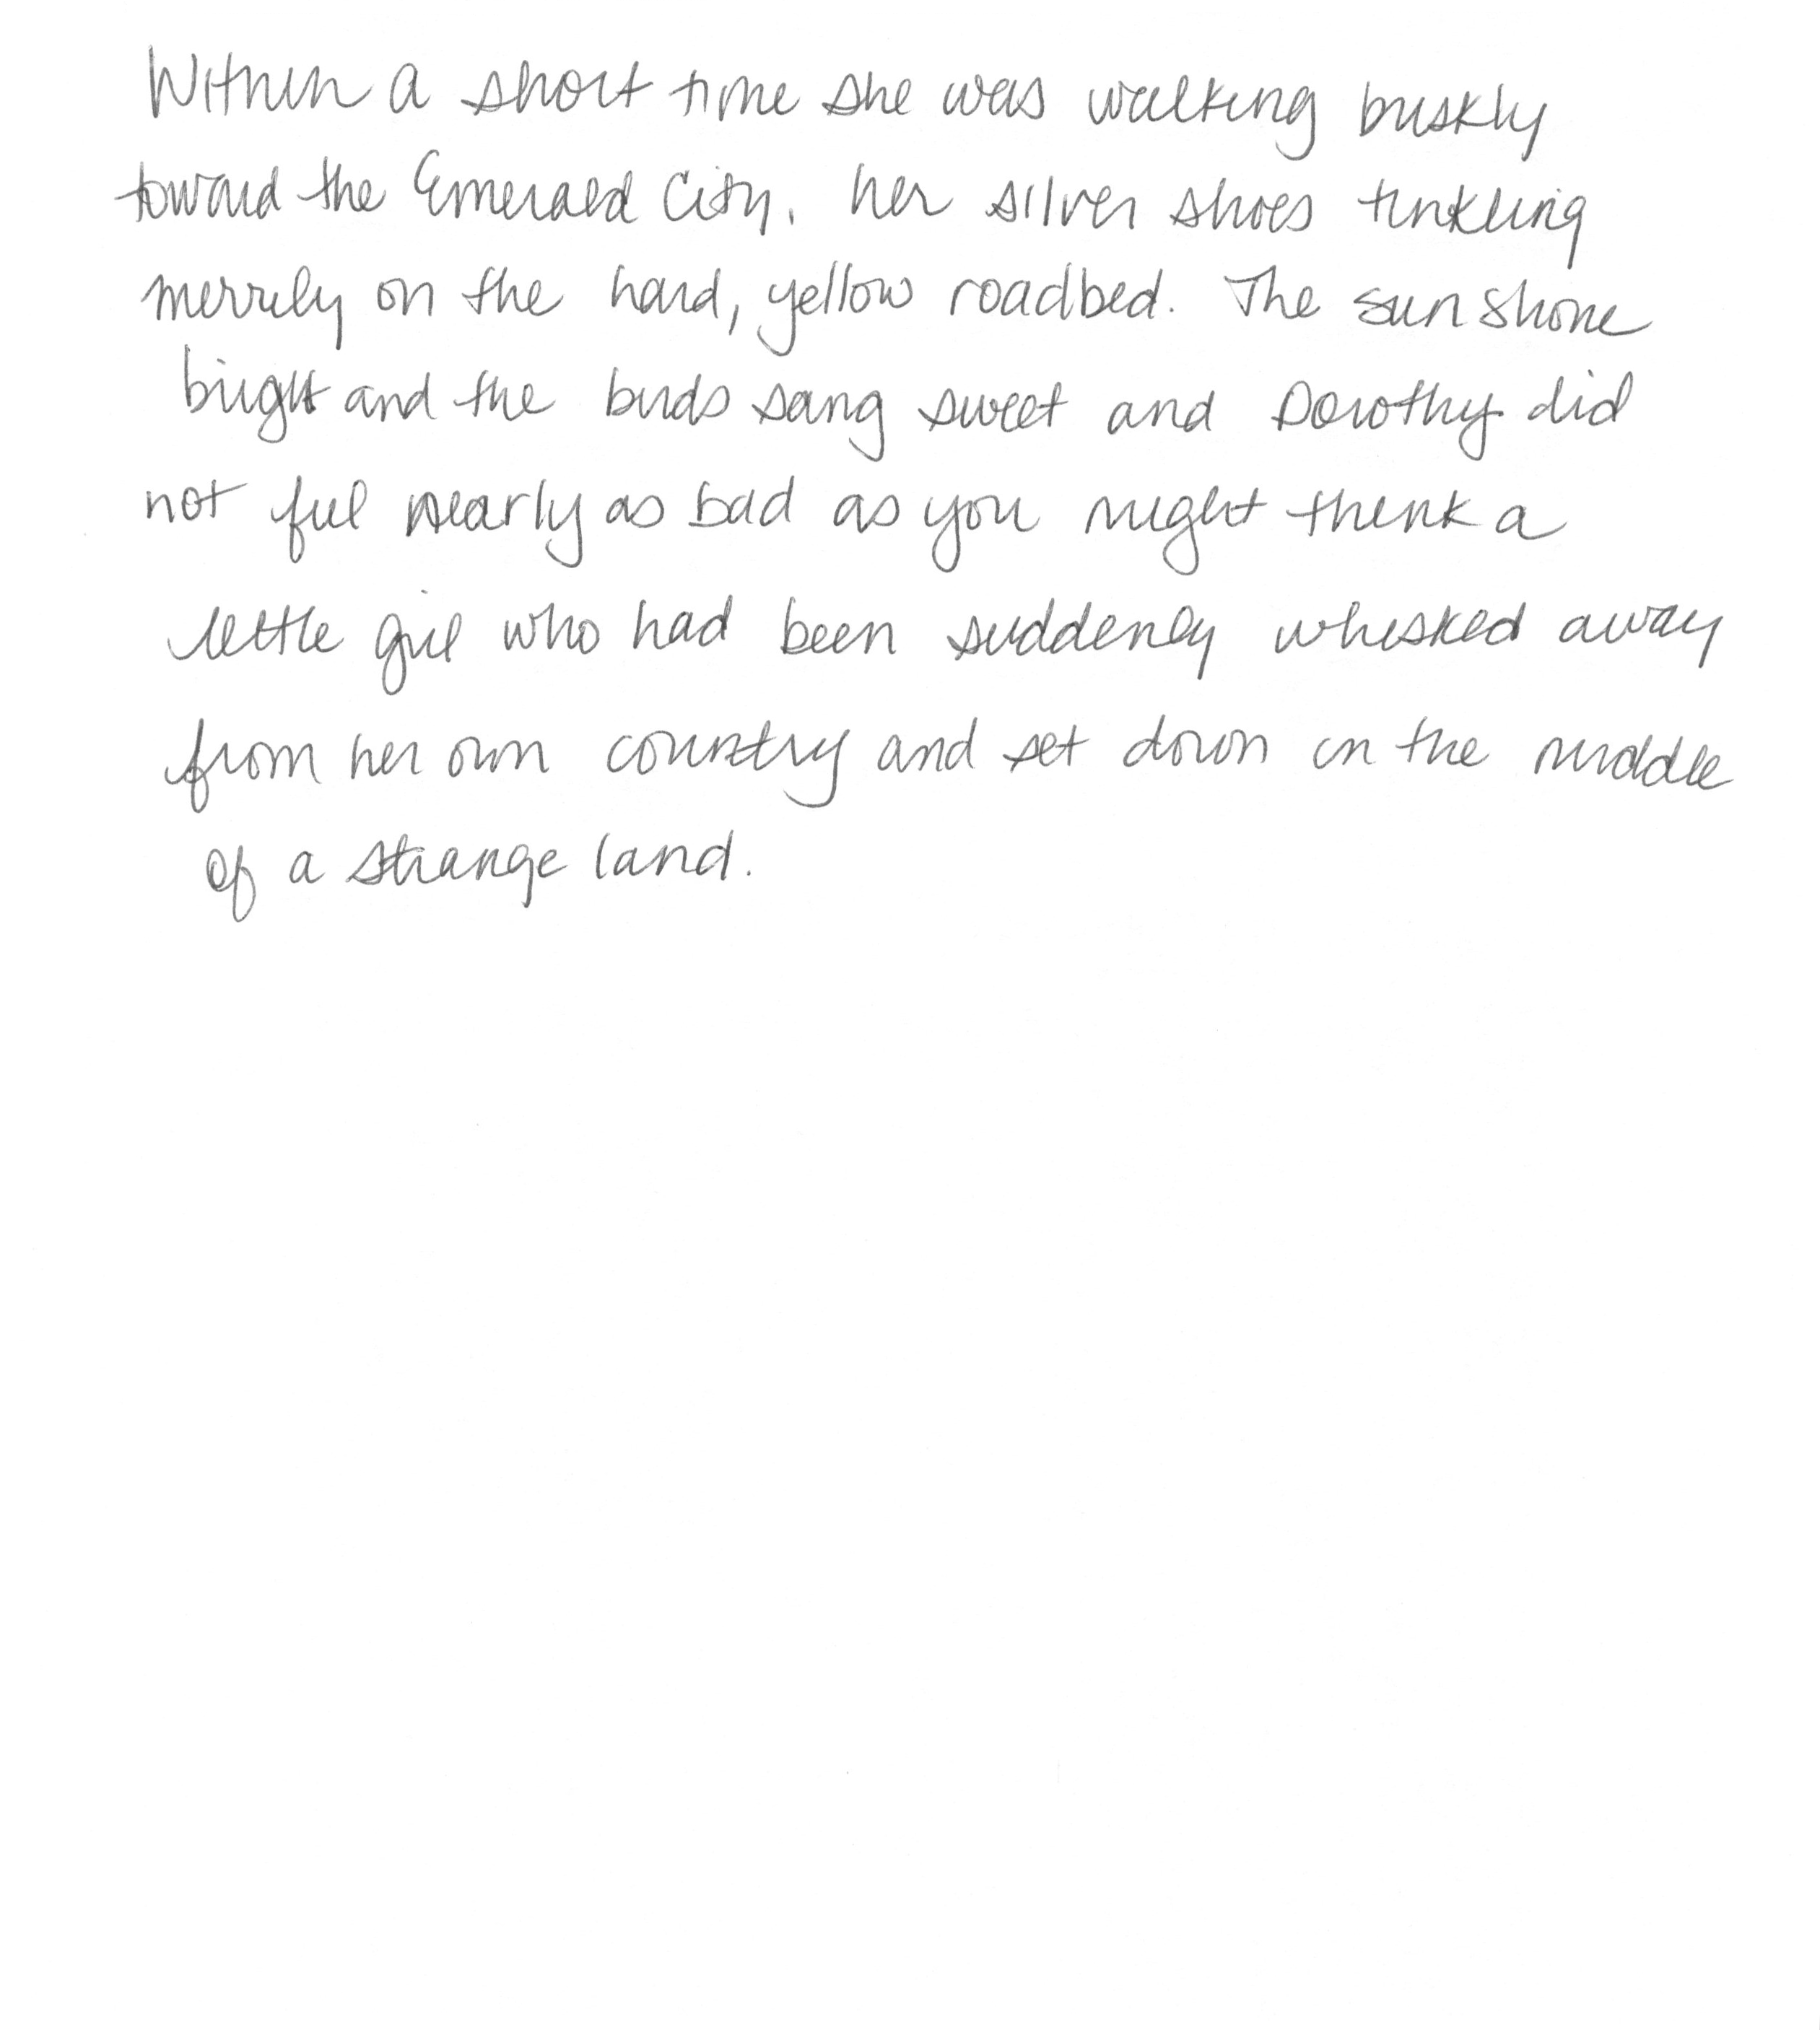 Within a short time she was walking briskly
toward the Emerald City, her silver shoes tinkling
merrily on the hard, yellow roadbed. The sun shone
bright and the birds sang sweet and Dorothy did
not feel nearly as bad as you might think a
little girl who had been suddenly whisked away
from her own country and set down in the middle
of a strange land.